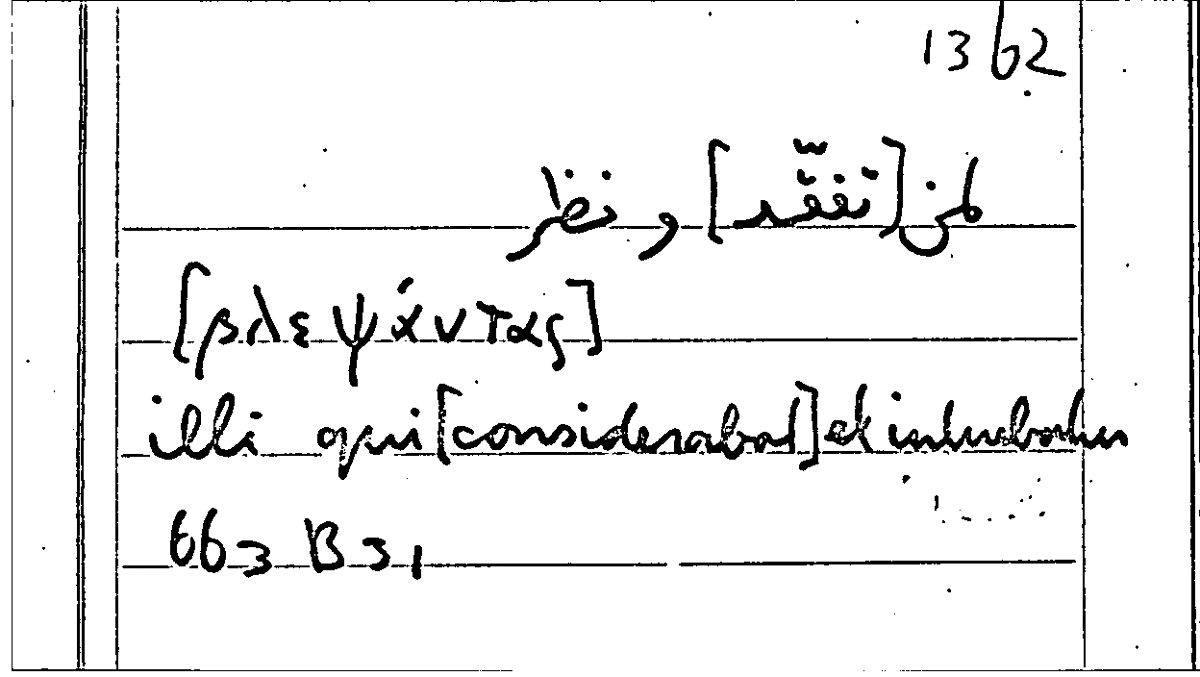 1362
لمن [تفقّد] و نظر
[βλεψάντας]
illi qui [considerabat] et intuebatur
663 B 31